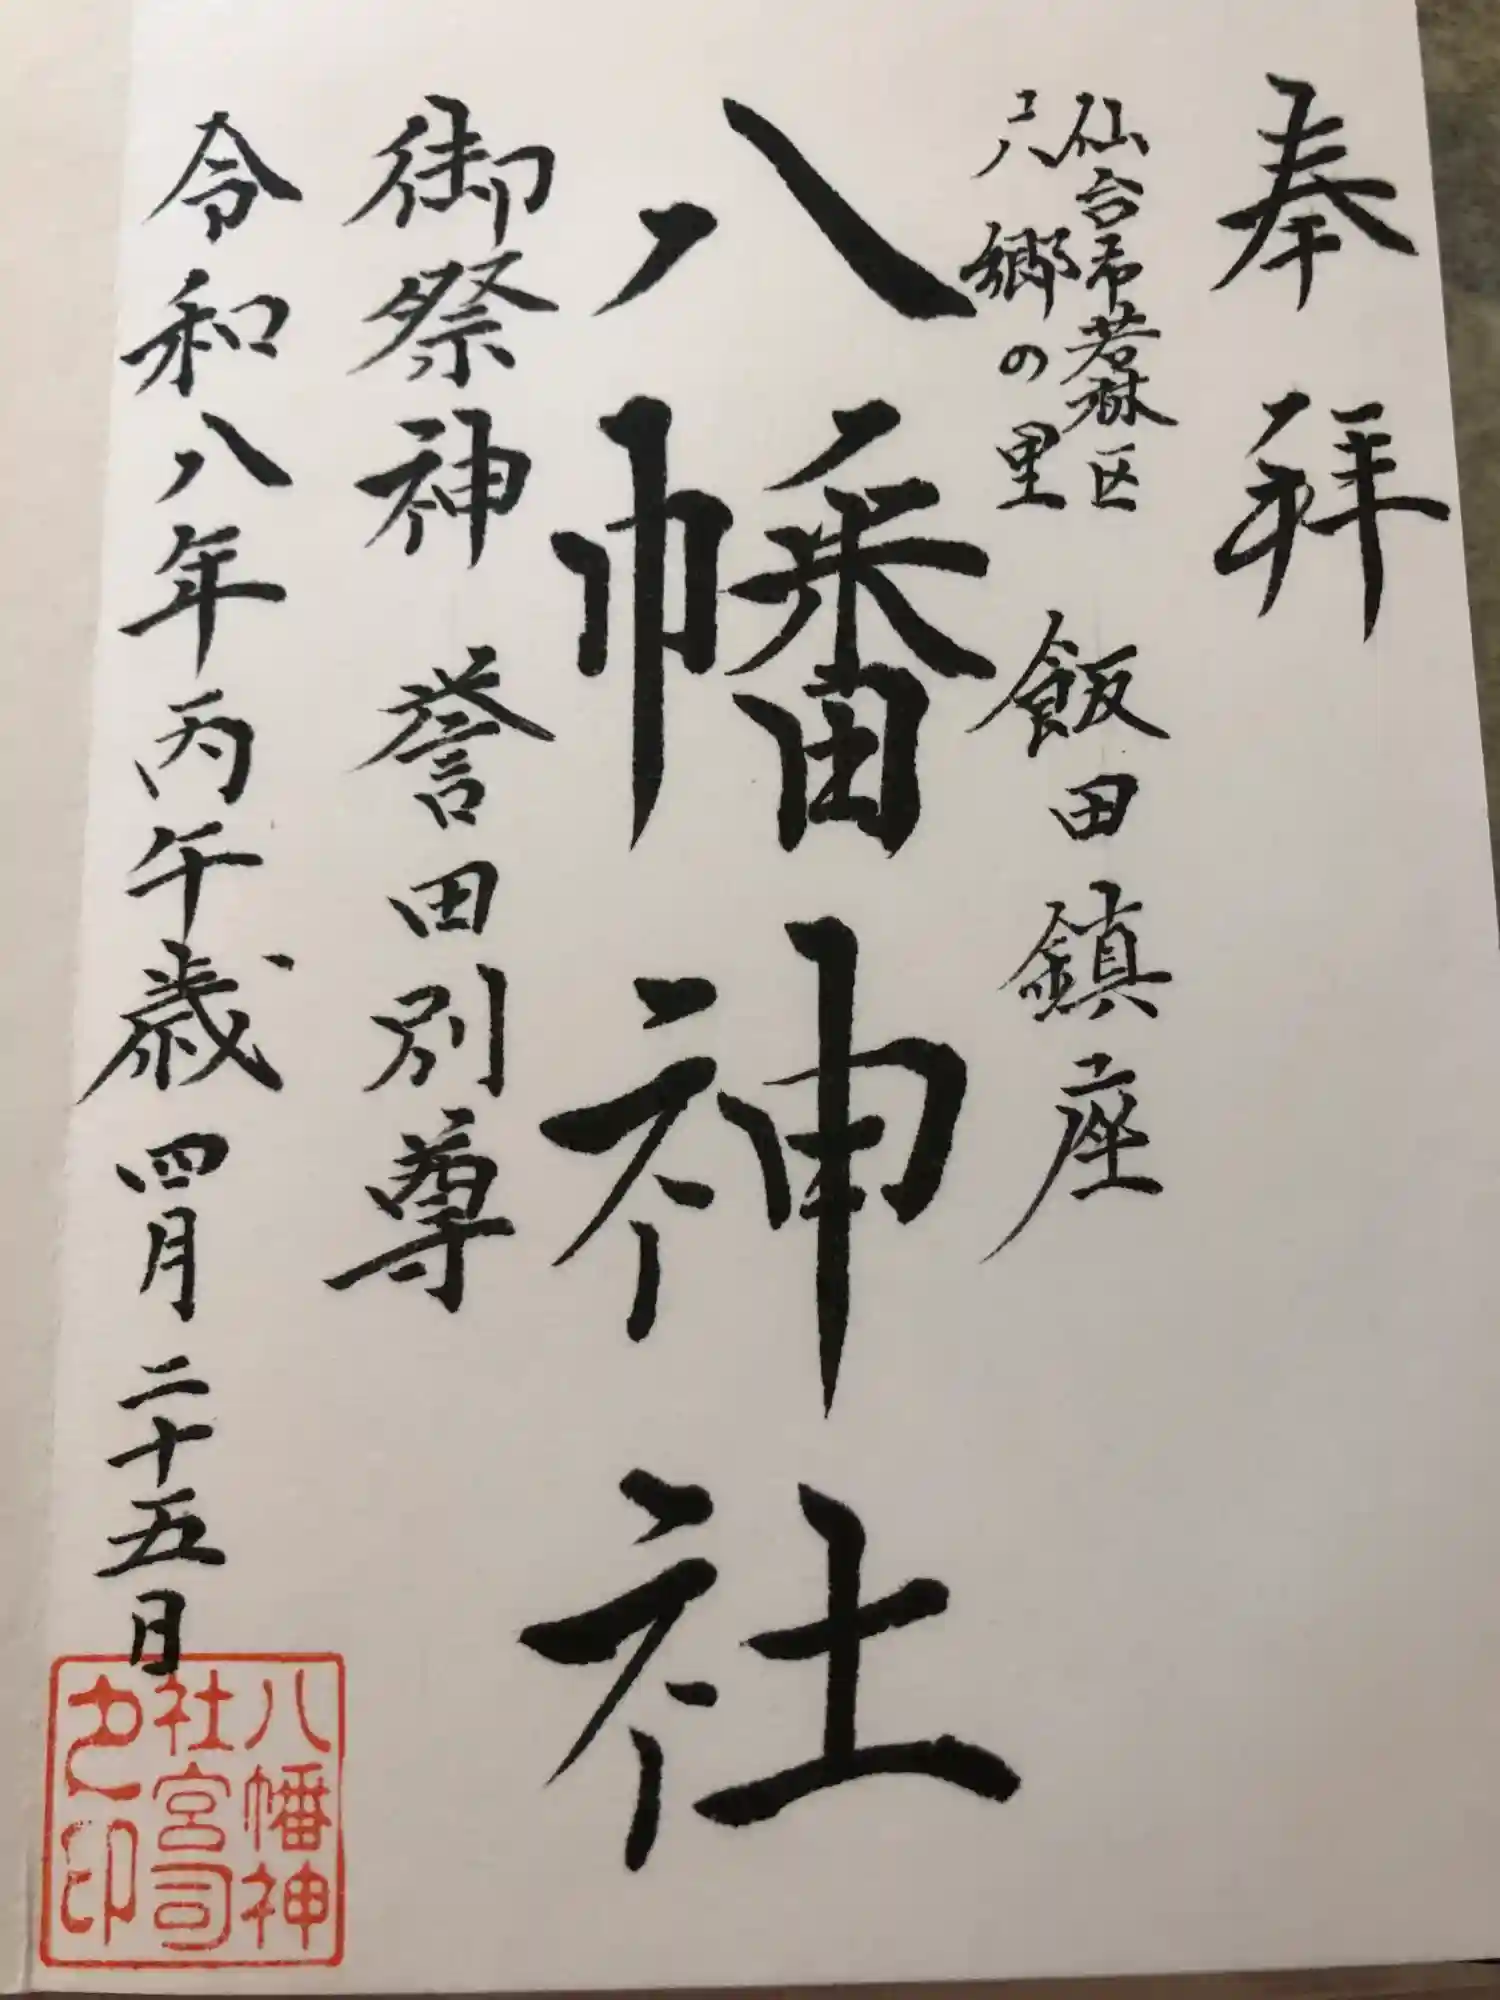 奉拝
仙台市若林区
六郷の里
飯田鎮座
八幡神社
御祭神 誉田別尊
令和八年丙午歳四月二十五日
八幡神
社宮司
之印